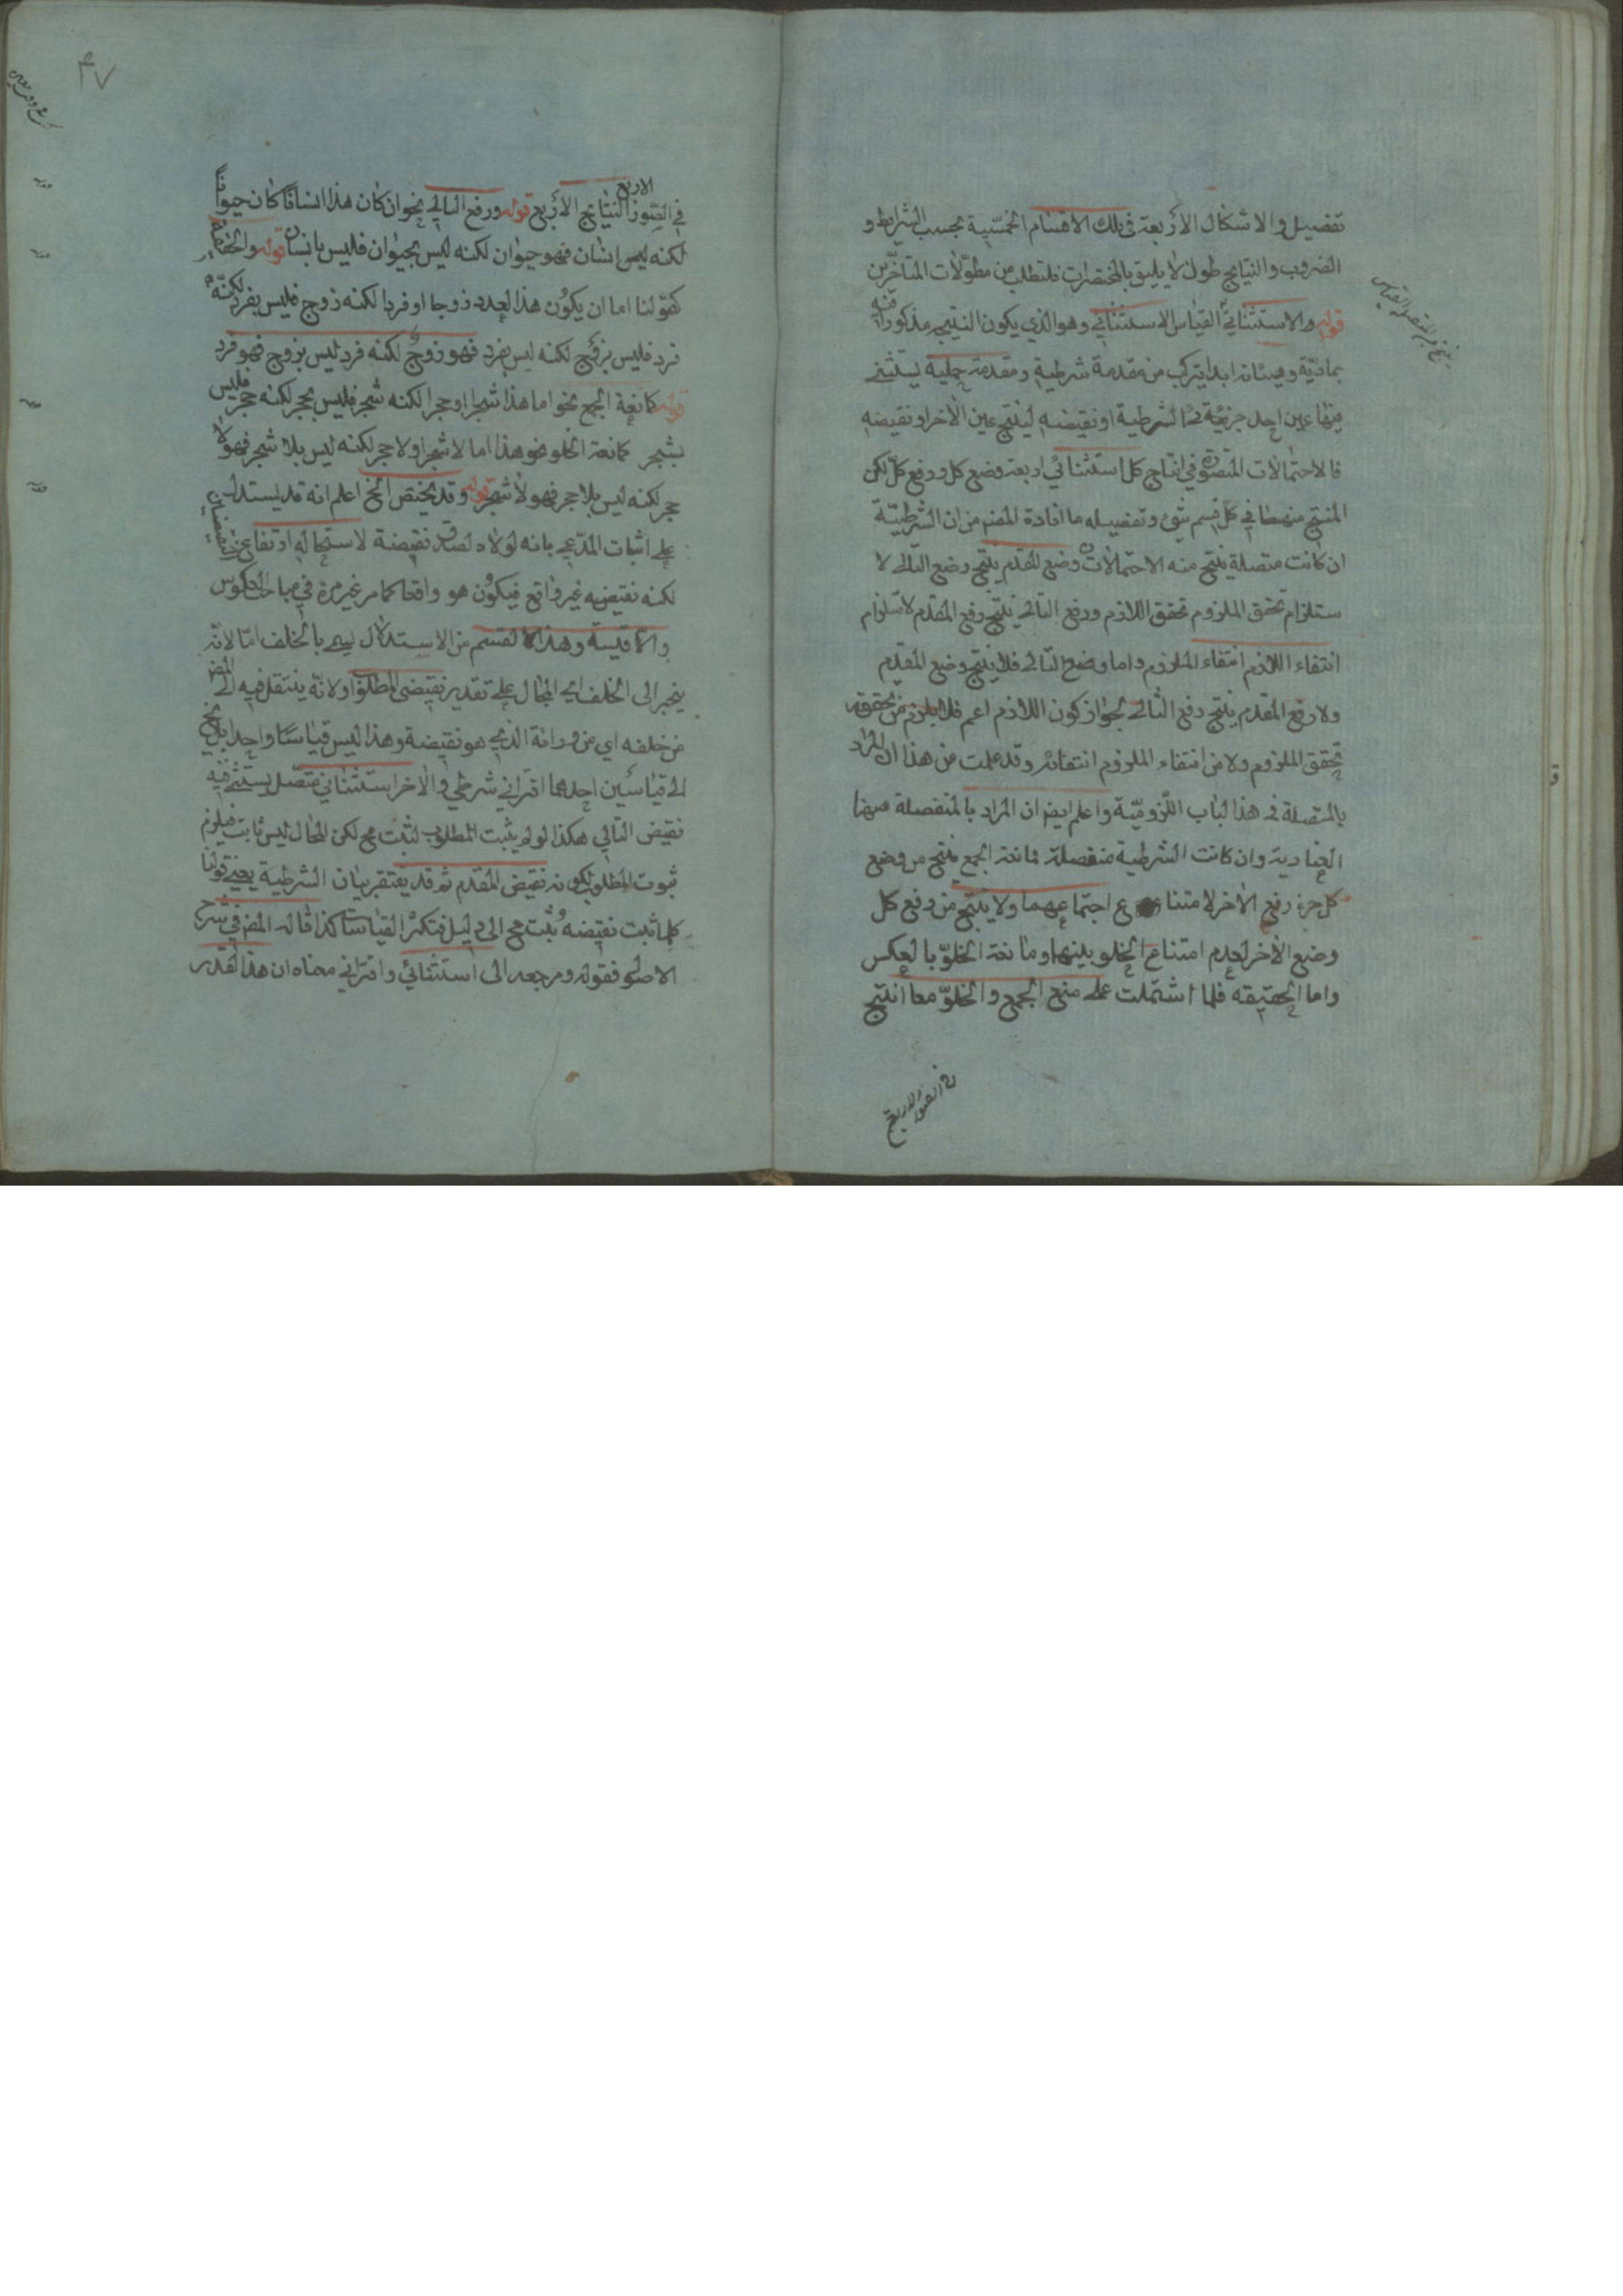 تفضيل والاشكال الأربعة فى تلك الاقسام الخمسية بحسب الشرايط و
الضروب والنتايج طول لا يليق بالمختصرات فلتطلب من مطولات المتأخرين
قوله والاستثنائي القياس الاستثنائي وهو الذي يكون النتيجة مذكورا فيه
بمادته وهيئاته ابدا يتركب من مقدمة شرطية ومقدمة حملية يستثنى
فيها عين احد جزئى الشرطية او نقيضه لينتج عين الآخر او نقيضه
فالاحتمالات المتصورة في انتاج كل استثنائي اربعة وضع كل ورفع كل لكن
المنتج منهما في كل قسم شئ وتفصيله ما افادة المض من ان الشرطية
ان كانت متصلة ينتج منه الاحتمالات وضع المقدم ينتج وضع التالى لا
ستلزام تحقق الملزوم تحقق اللازم ورفع التالى ينتج رفع المقدم لاستلزام
انتفاء اللازم انتفاء الملزوم واما وضع التالى فلا ينتج وضع المقدم
ولا رفع المقدم ينتج رفع التالى لجواز كون اللازم اعم فلا يلزم من تحققه
تحقق الملزوم ولا من انتفاء الملزوم انتفائه وقد علمت من هذا ان المراد
بالمتصلة فى هذا الباب اللزومية واعلم ايضا ان المراد بالمنفصلة ههنا
العنادية وان كانت الشرطية منفصلة فمانعة الجمع ينتج من وضع
كل جزء رفع الآخر لامتناع اجتماعهما ولا ينتج من رفع كل
وضع الآخر لعدم امتناع الخلو بينهما ومانعة الخلو بالعكس
واما الحقيقه فلما اشتملت على منع الجمع والخلو معا انتج
في الصور الاربع
٤٧
الاربع
في الصور النتايج الأربع قوله ورفع التالي نحو ان كان هذا انسانا كان حيوانا
لكنه ليس انسان فهو حيوان لكنه ليس بحيوان فليس بانسان قوله والحقيقية
كقولنا اما ان يكون هذا العدد زوجا او فردا لكنه زوج فليس بفرد لكنه
فرد فليس بزوج لكنه ليس بفرد فهو زوج لكنه فرد ليس بزوج فهو فرد
قوله كمانعة الجمع نحو اما هذا شجر او حجر لكنه شجر فليس بحجر لكنه حجر فليس
بشجر كمانعة الخلو نحو هذا اما لا شجر او لا حجر لكنه ليس بلا شجر فهو لا
حجر لكنه ليس بلا حجر فهو لا شجر قوله وقد يختص الخ اعلم انه قد يستدل
على اثبات المدعى بانه لولاه لصدق نقيضه لاستحاله ارتفاع النقيضين
لكنه نقيضه غير واقع فيكون هو واقعا كما مر غير مرة في مباحث العكوس
والاقيسة وهذا القسم من الاستدلال يسمى بالخلف اما لانه
ينجر الى الخلف اى المحال على تقدير نقيض المطلوب او لانه ينتقل فيه الى المض
من خلفه اي من ورائه الذي هو نقيضه وهذا ليس قياسا واحدا بل ينحل
الى قياسين احدهما اقتراني شرطي والآخر استثنائي متصل يستثنى فيه
نقيض التالي هكذا لو لم يثبت المطلوب لثبت مح لكن المحال ليس ثابت فيلزم
ثبوت المطلوب لكونه نقيض المقدم ثم قد يفتقر بيان الشرطية يعنى قولنا
كلما ثبت نقيضه ثبت مح الى دليل فتكثر القياسات كذا قاله المض في شرح
الاصول فقوله ومرجعه الى استثنائي واقتراني معناه ان هذا القدر